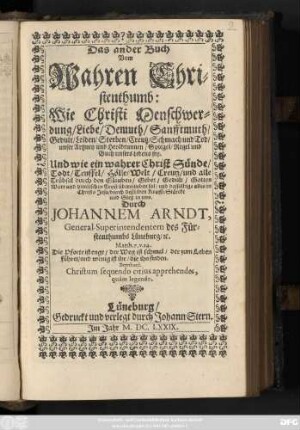 Das ander Buch
Vom
Wahren Chri-
stenthumb:
Wie Christi Menschwer-
dung/Liebe/Demuth/Sanfftmuth/
Gedult/Leiden/Sterben/Creutz/Schmach und Tod/
unser Artzney und Heilbrunnen/Spiegel/Regel und
Buch unsers Lebens sey.
Und wie ein wahrer Christ Sünde/
Todt/Teuffel/Hölle/Welt/Creutz/und alle
Trübsal durch den Glauben/Gebet/Gedult/Gottes
Wort und
Christo Jesu durch desselben Krafft/Stärcke
und Sieg in uns.
Durch
JOHANNEM ARNDT,
General-Superintendentem des Für-
stenthumbs Lüneburg/ec.
Matth. 7. v. 14.
Die Pforte ist enge/der Weg ist schmal/der zum Leben
führet/und wenig ist ihr/die ihn finden.
Christum sequendo citius apprehendes,
quàm legendo.
Lüneburg/
Gedruckt und verlegt durch Johann Stern,
Im Jahr M. DC. LXXIX.